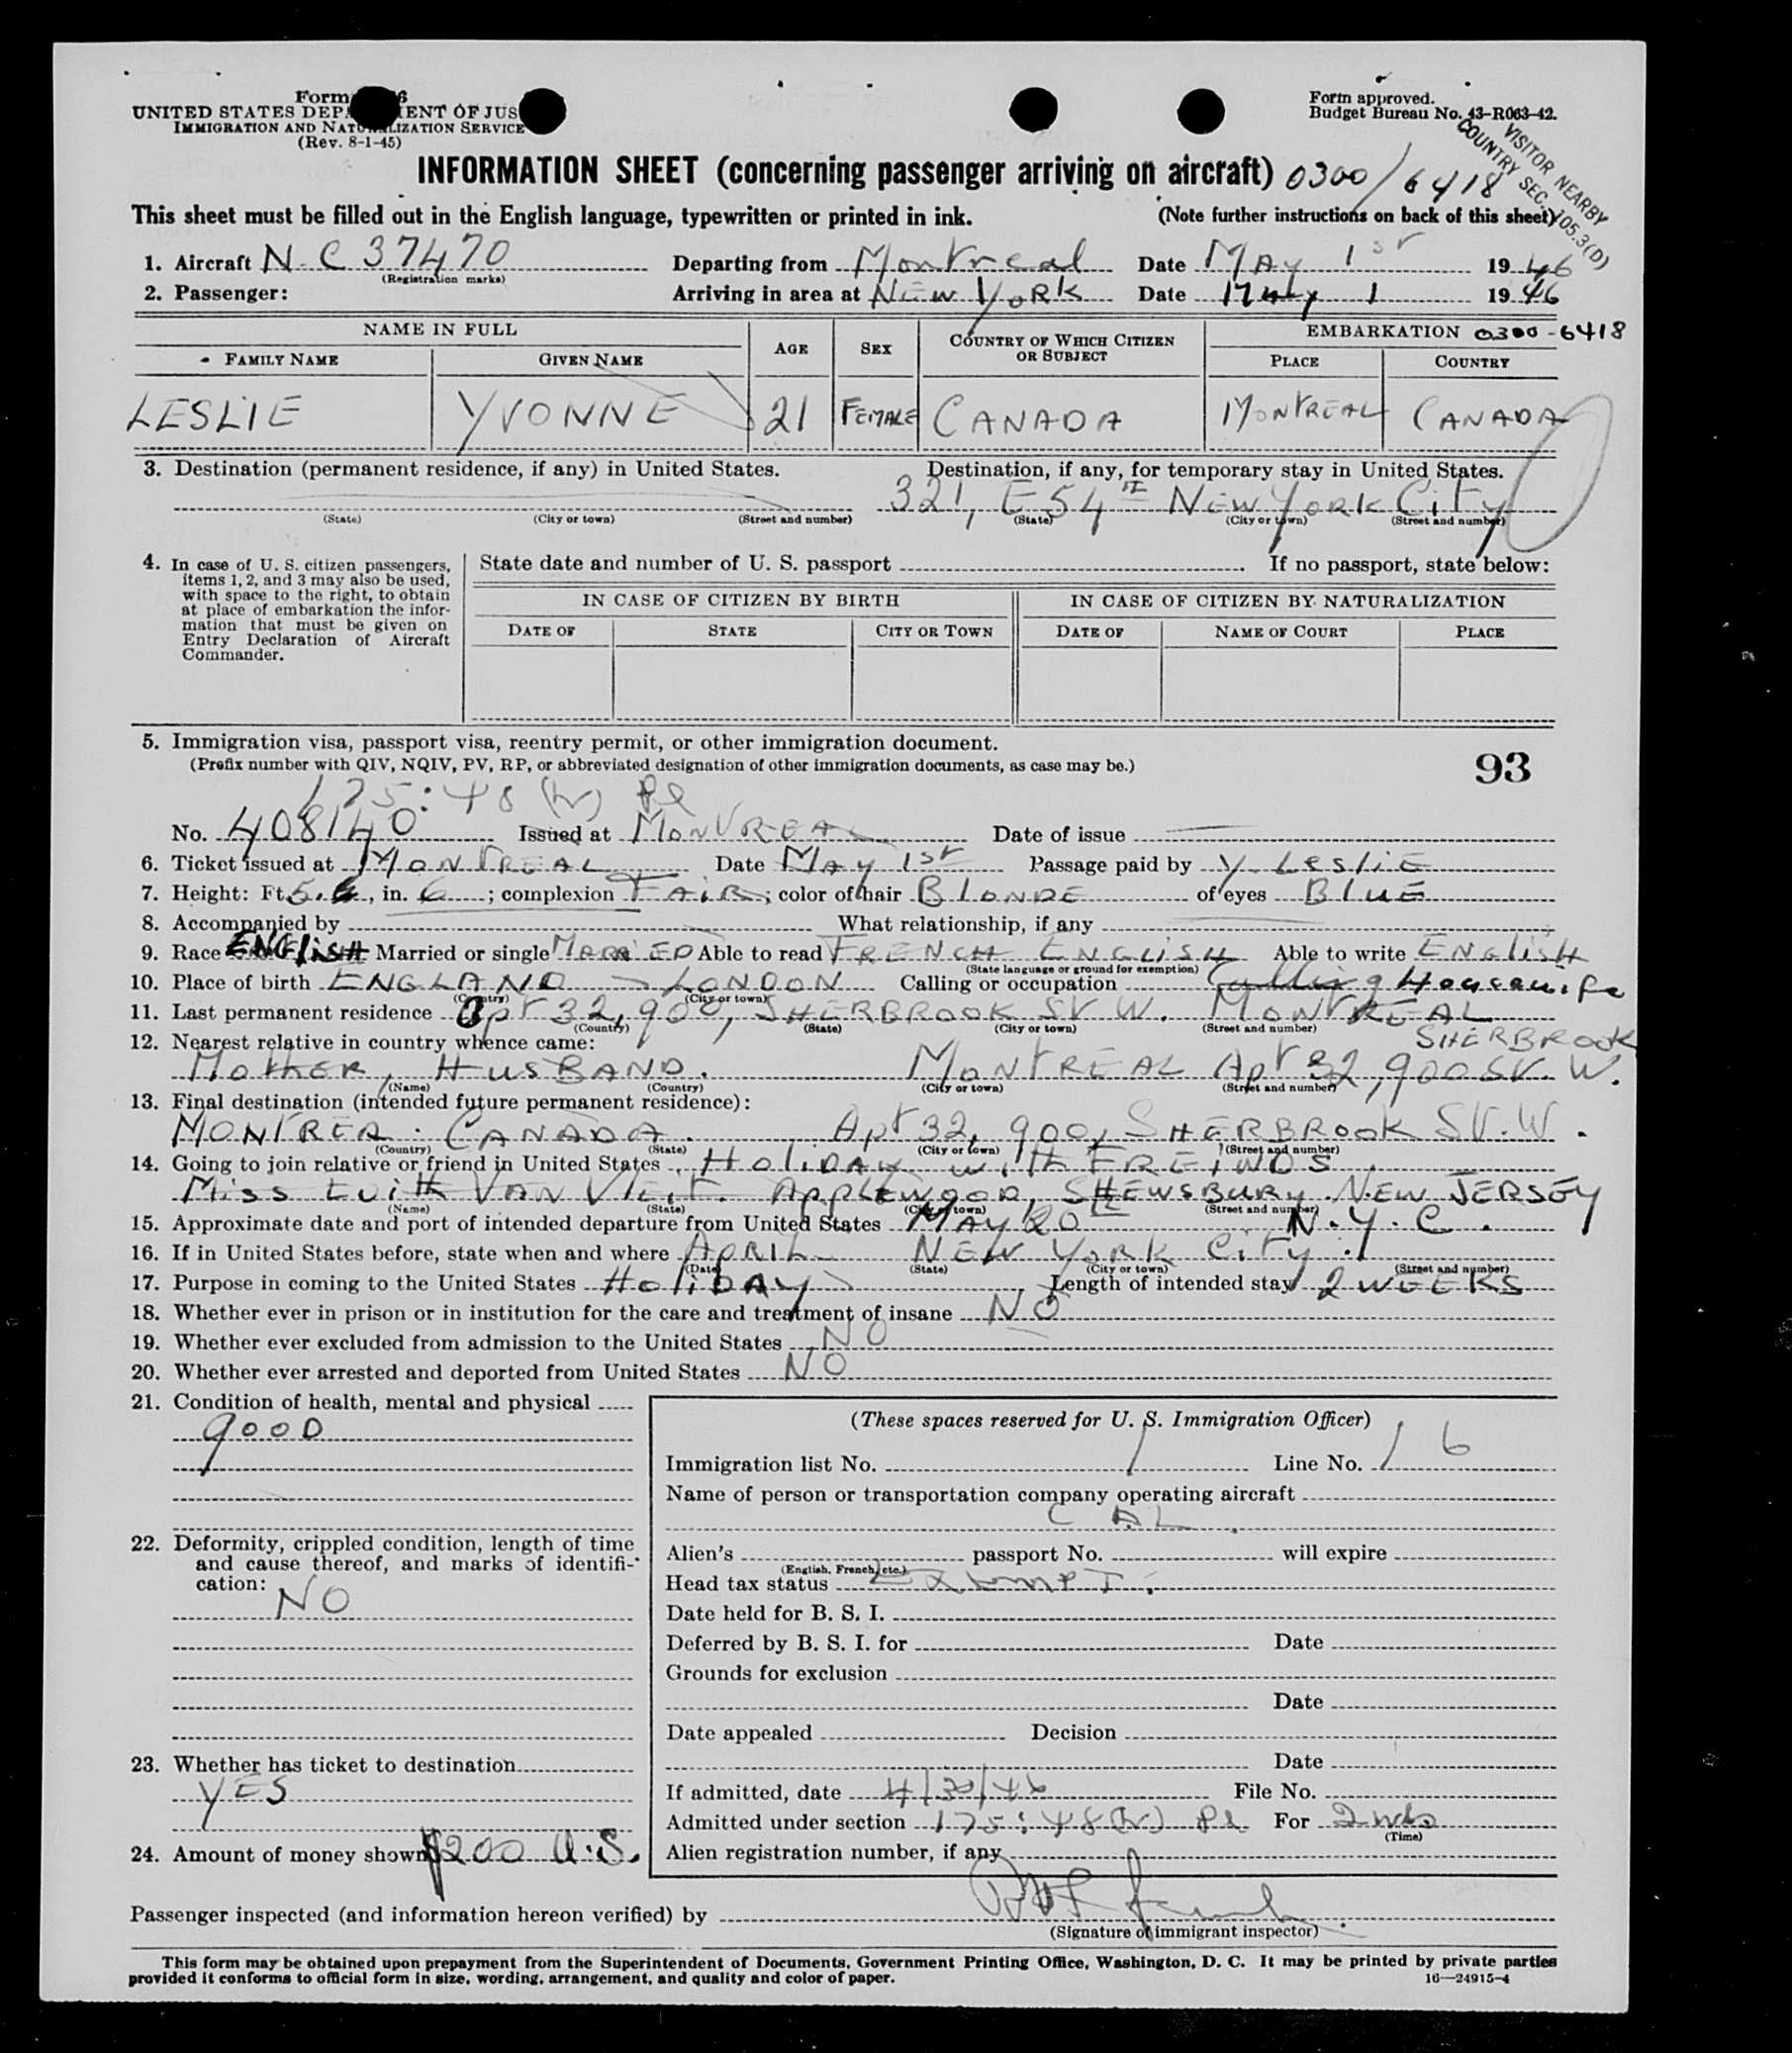 Form
UNITED STATES DEPA ENT OF JUS
IMMIGRATION AND NATURALIZATION SERVICE
(Rev. 8-1-45)
Form approved.
Budget Bureau No. 43-R063-42.
VISITOR NEARBY
COUNTRY SEC. 105.3(D)
INFORMATION SHEET (concerning passenger arriving on aircraft) 0300/6418
This sheet must be filled out in the English language, typewritten or printed in ink. (Note further instructions on back of this sheet)
1. Aircraft N.C 37470 Departing from Montreal Date MAy 1st 1946
(Registration marks)
2. Passenger: Arriving in area at NEW YORK Date May 1 1946
NAME IN FULL AGE SEX COUNTRY OF WHICH CITIZEN OR SUBJECT EMBARKATION 0300-6418
FAMILY NAME GIVEN NAME PLACE COUNTRY
LESLIE YVONNE 21 FEMALE CANADA MONTREAL CANADA
3. Destination (permanent residence, if any) in United States. Destination, if any, for temporary stay in United States.
321, E 54TH NEW YORK CiTy
(State) (City or town) (Street and number) (State) (City or town) (Street and number)
4. In case of U. S. citizen passengers, items 1, 2, and 3 may also be used, with space to the right, to obtain at place of embarkation the information that must be given on Entry Declaration of Aircraft Commander.
State date and number of U. S. passport If no passport, state below:
IN CASE OF CITIZEN BY BIRTH IN CASE OF CITIZEN BY NATURALIZATION
DATE OF STATE CITY OR TOWN DATE OF NAME OF COURT PLACE
5. Immigration visa, passport visa, reentry permit, or other immigration document.
(Prefix number with QIV, NQIV, PV, RP, or abbreviated designation of other immigration documents, as case may be.)
93
175:48 (b) Pl
No. 408140 Issued at MONTREAL Date of issue
6. Ticket issued at MONTREAL Date MAy 1st Passage paid by Y. LesliE
7. Height: Ft. 5.6, in. 6; complexion FAiR; color of hair BlONDE of eyes BluE
8. Accompanied by What relationship, if any
9. Race ENGliSH Married or single MARRiED Able to read FRENCH ENGLISH Able to write ENGliSH
(State language or ground for exemption)
10. Place of birth ENGLAND - LONDON Calling or occupation Housewife
(Country) (City or town)
11. Last permanent residence Apt 32, 900, SHERBROOK ST W. MONTREAL
(Country) (State) (City or town) (Street and number)
12. Nearest relative in country whence came: SHERBROOK
MotHER, HUSBAND. MONTREAL Apt 32, 900 ST. W.
(Name) (Country) (City or town) (Street and number)
13. Final destination (intended future permanent residence):
MONTREA. CANADA. Apt 32, 900, SHERBROOK ST. W.
(Country) (State) (City or town) (Street and number)
14. Going to join relative or friend in United States HOliDAY wiTH FREiNDS
Miss VAN VlEiT. APPLEWOOD, SHEWSBURY. NEW JERSEY
(Name) (State) (City or town) (Street and number)
15. Approximate date and port of intended departure from United States MAY 20TH N.Y.C.
16. If in United States before, state when and where APRIL NEW YORK CiTy.
(Date) (State) (City or town) (Street and number)
17. Purpose in coming to the United States HoliDAY Length of intended stay 2 WEEKS
18. Whether ever in prison or in institution for the care and treatment of insane NO
19. Whether ever excluded from admission to the United States NO
20. Whether ever arrested and deported from United States NO
21. Condition of health, mental and physical
gooD
22. Deformity, crippled condition, length of time and cause thereof, and marks of identification:
NO
23. Whether has ticket to destination
YES
24. Amount of money shown $200 U.S.
(These spaces reserved for U. S. Immigration Officer)
Immigration list No. 1 Line No. 16
Name of person or transportation company operating aircraft
CAL
Alien's passport No. will expire
(English, French, etc.)
Head tax status Exempt.
Date held for B. S. I.
Deferred by B. S. I. for Date
Grounds for exclusion
Date
Date appealed Decision
Date
If admitted, date 4/30/46 File No.
Admitted under section 175:48(b) Pl For 2 wks
(Time)
Alien registration number, if any
Passenger inspected (and information hereon verified) by
(Signature of immigrant inspector)
This form may be obtained upon prepayment from the Superintendent of Documents, Government Printing Office, Washington, D. C. It may be printed by private parties
provided it conforms to official form in size, wording, arrangement, and quality and color of paper. 16—24915-4